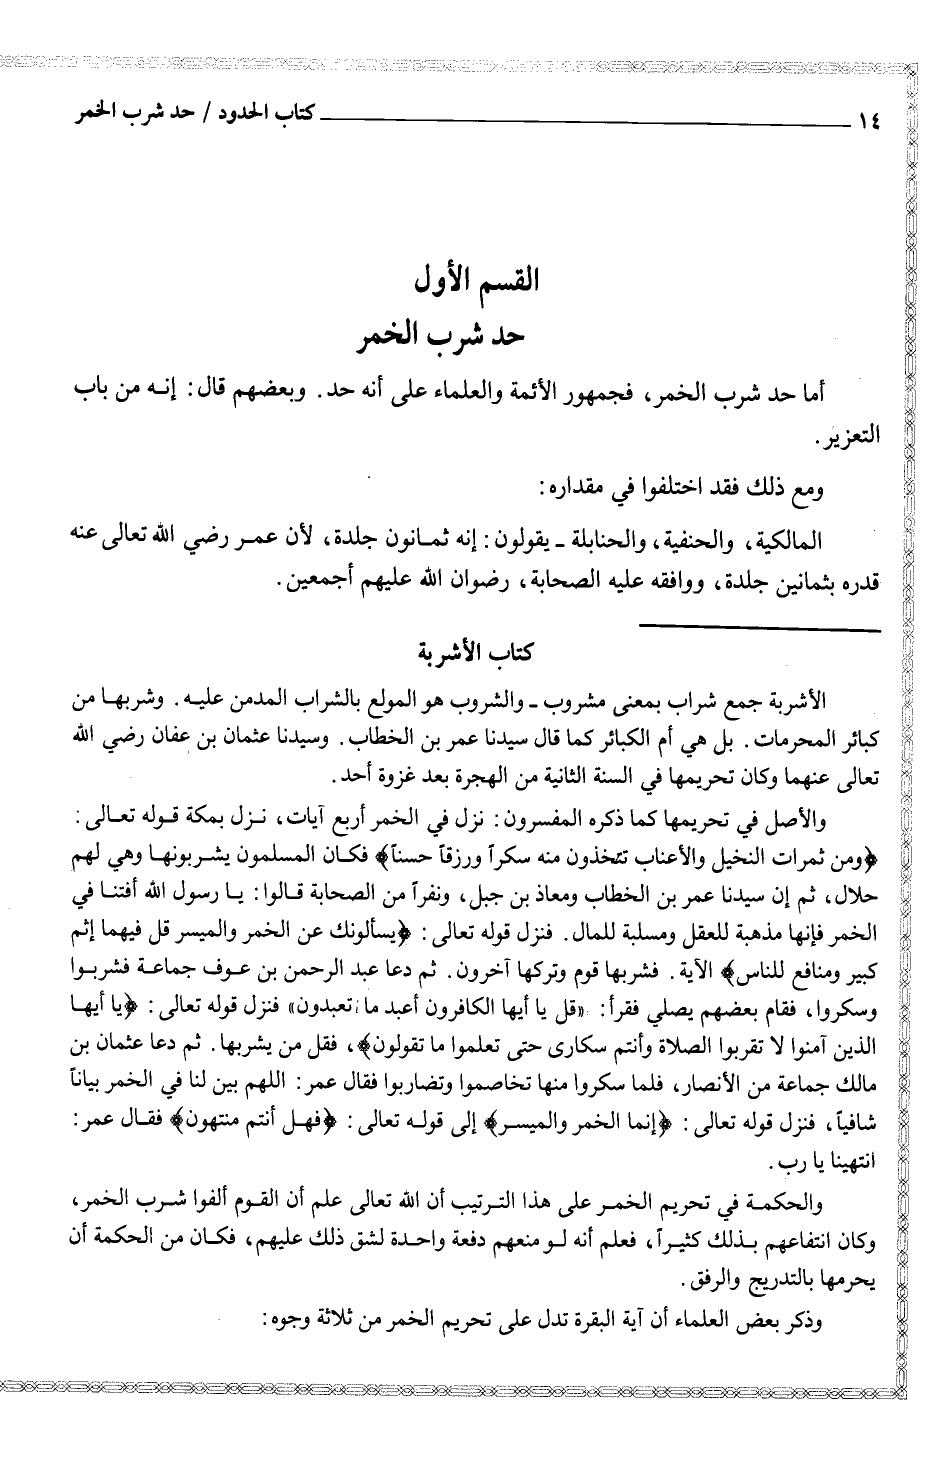 ١٤ ــــــــــــــــــــ كتاب الحدود / حد شرب الخمر
القسم الأول
حد شرب الخمر
أما حد شرب الخمر، فجمهور الأئمة والعلماء على أنه حد. وبعضهم قال: إنه من باب
التعزير.
ومع ذلك فقد اختلفوا في مقداره:
المالكية، والحنفية، والحنابلة ـ يقولون: إنه ثمانون جلدة، لأن عمر رضي الله تعالى عنه
قدره بثمانين جلدة، ووافقه عليه الصحابة، رضوان الله عليهم أجمعين.
كتاب الأشربة
الأشربة جمع شراب بمعنى مشروب ـ والشروب هو المولع بالشراب المدمن عليه. وشربها من
كبائر المحرمات. بل هي أم الكبائر كما قال سيدنا عمر بن الخطاب. وسيدنا عثمان بن عفان رضي الله
تعالى عنهما وكان تحريمها في السنة الثانية من الهجرة بعد غزوة أحد.
والأصل في تحريمها كما ذكره المفسرون: نزل في الخمر أربع آيات، نزل بمكة قوله تعالى:
﴿ومن ثمرات النخيل والأعناب تتخذون منه سكراً ورزقاً حسناً﴾ فكان المسلمون يشربونها وهي لهم
حلال، ثم إن سيدنا عمر بن الخطاب ومعاذ بن جبل، ونفراً من الصحابة قالوا: يا رسول الله أفتنا في
الخمر فإنها مذهبة للعقل ومسلبة للمال. فنزل قوله تعالى: ﴿يسألونك عن الخمر والميسر قل فيهما إثم
كبير ومنافع للناس﴾ الآية. فشربها قوم وتركها آخرون. ثم دعا عبد الرحمن بن عوف جماعة فشربوا
وسكروا، فقام بعضهم يصلي فقرأ: «قل يا أيها الكافرون أعبد ما تعبدون» فنزل قوله تعالى: ﴿يا أيها
الذين آمنوا لا تقربوا الصلاة وأنتم سكارى حتى تعلموا ما تقولون﴾، فقل من يشربها. ثم دعا عثمان بن
مالك جماعة من الأنصار، فلما سكروا منها تخاصموا وتضاربوا فقال عمر: اللهم بين لنا في الخمر بياناً
شافياً، فنزل قوله تعالى: ﴿إنما الخمر والميسر﴾ إلى قوله تعالى: ﴿فهل أنتم منتهون﴾ فقال عمر:
انتهينا يا رب.
والحكمة في تحريم الخمر على هذا الترتيب أن الله تعالى علم أن القوم ألفوا شرب الخمر،
وكان انتفاعهم بذلك كثيراً، فعلم أنه لو منعهم دفعة واحدة لشق ذلك عليهم، فكان من الحكمة أن
يحرمها بالتدريج والرفق.
وذكر بعض العلماء أن آية البقرة تدل على تحريم الخمر من ثلاثة وجوه: